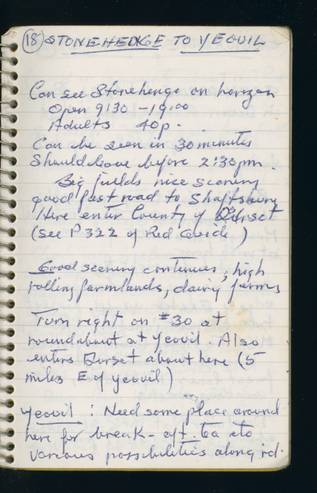 (18) STONEHEDGE TO YEOVIL
Can see Stonehenge on horizon
Open 9:30 - 19:00
Adults 40p.
Can be seen in 30 minutes
Should leave before 2:30pm.
Big fields nice scenery
good fast road to Shaftsbury
Here enter County of Dorset
(see P 322 of Red Guide)
Good scenery continues, high
rolling farmlands, dairy farms
Turn right on #30 at
roundabout at Yeovil. Also
enters Dorset about here (5
miles E of Yeovil)
Yeovil: Need some place around
here for break - aft. tea etc
various possibilities along rd.